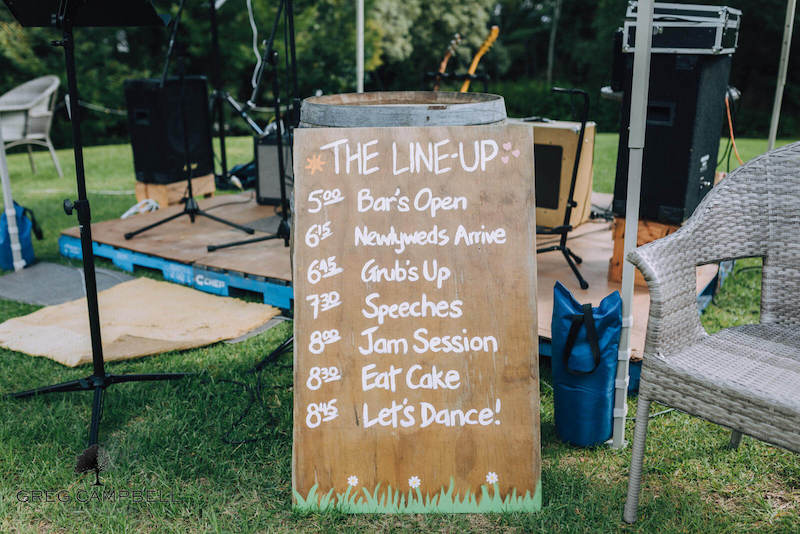 THE LINE-UP
5:00 Bar's Open
6:15 Newlyweds Arrive
6:45 Grub's Up
7:30 Speeches
8:00 Jam Session
8:30 Eat Cake
8:45 Let's Dance!
CHEP
GREG CAMPBELL